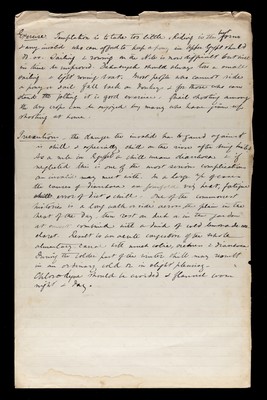 Exercise. Temptation is to take too little. Riding is the form
& any invalid who can afford to keep a pony in Upper Egypt should
do so. Sailing & rowing on the Nile is now difficult but will
in time be improved. Dahabiyeh should always tow a small
sailing & light rowing boat. Most people who cannot ride
a pony or mule fall back on donkeys & for those who can
stand the jolting it is good exercise. Quail shooting among
the dry crops can be enjoyed by many who have given up
shooting at home.
Precaution. the danger the invalid has to guard against
is chill & especially chill on the river after being
As a rule in Egypt a chill means diarrhoea & if
neglected this is one of the most serious complications
an invalid may meet with. In a large % of cases
the causes of diarrhoea are heat, fatigue
chill error of diet & chill. One of the commonest
histories is a long walk or ride across the plain in the
heat of the day then rest on deck or in the garden
at combined with a drink of cold lemonade or
claret. Result is an acute congestion of the whole
alimentary canal with much colic, sickness & diarrhoea.
During the colder part of the winter chill may result
in an ordinary cold or in slight pleurisy.
Chlorodyne should be avoided & flannel worn
night & day.